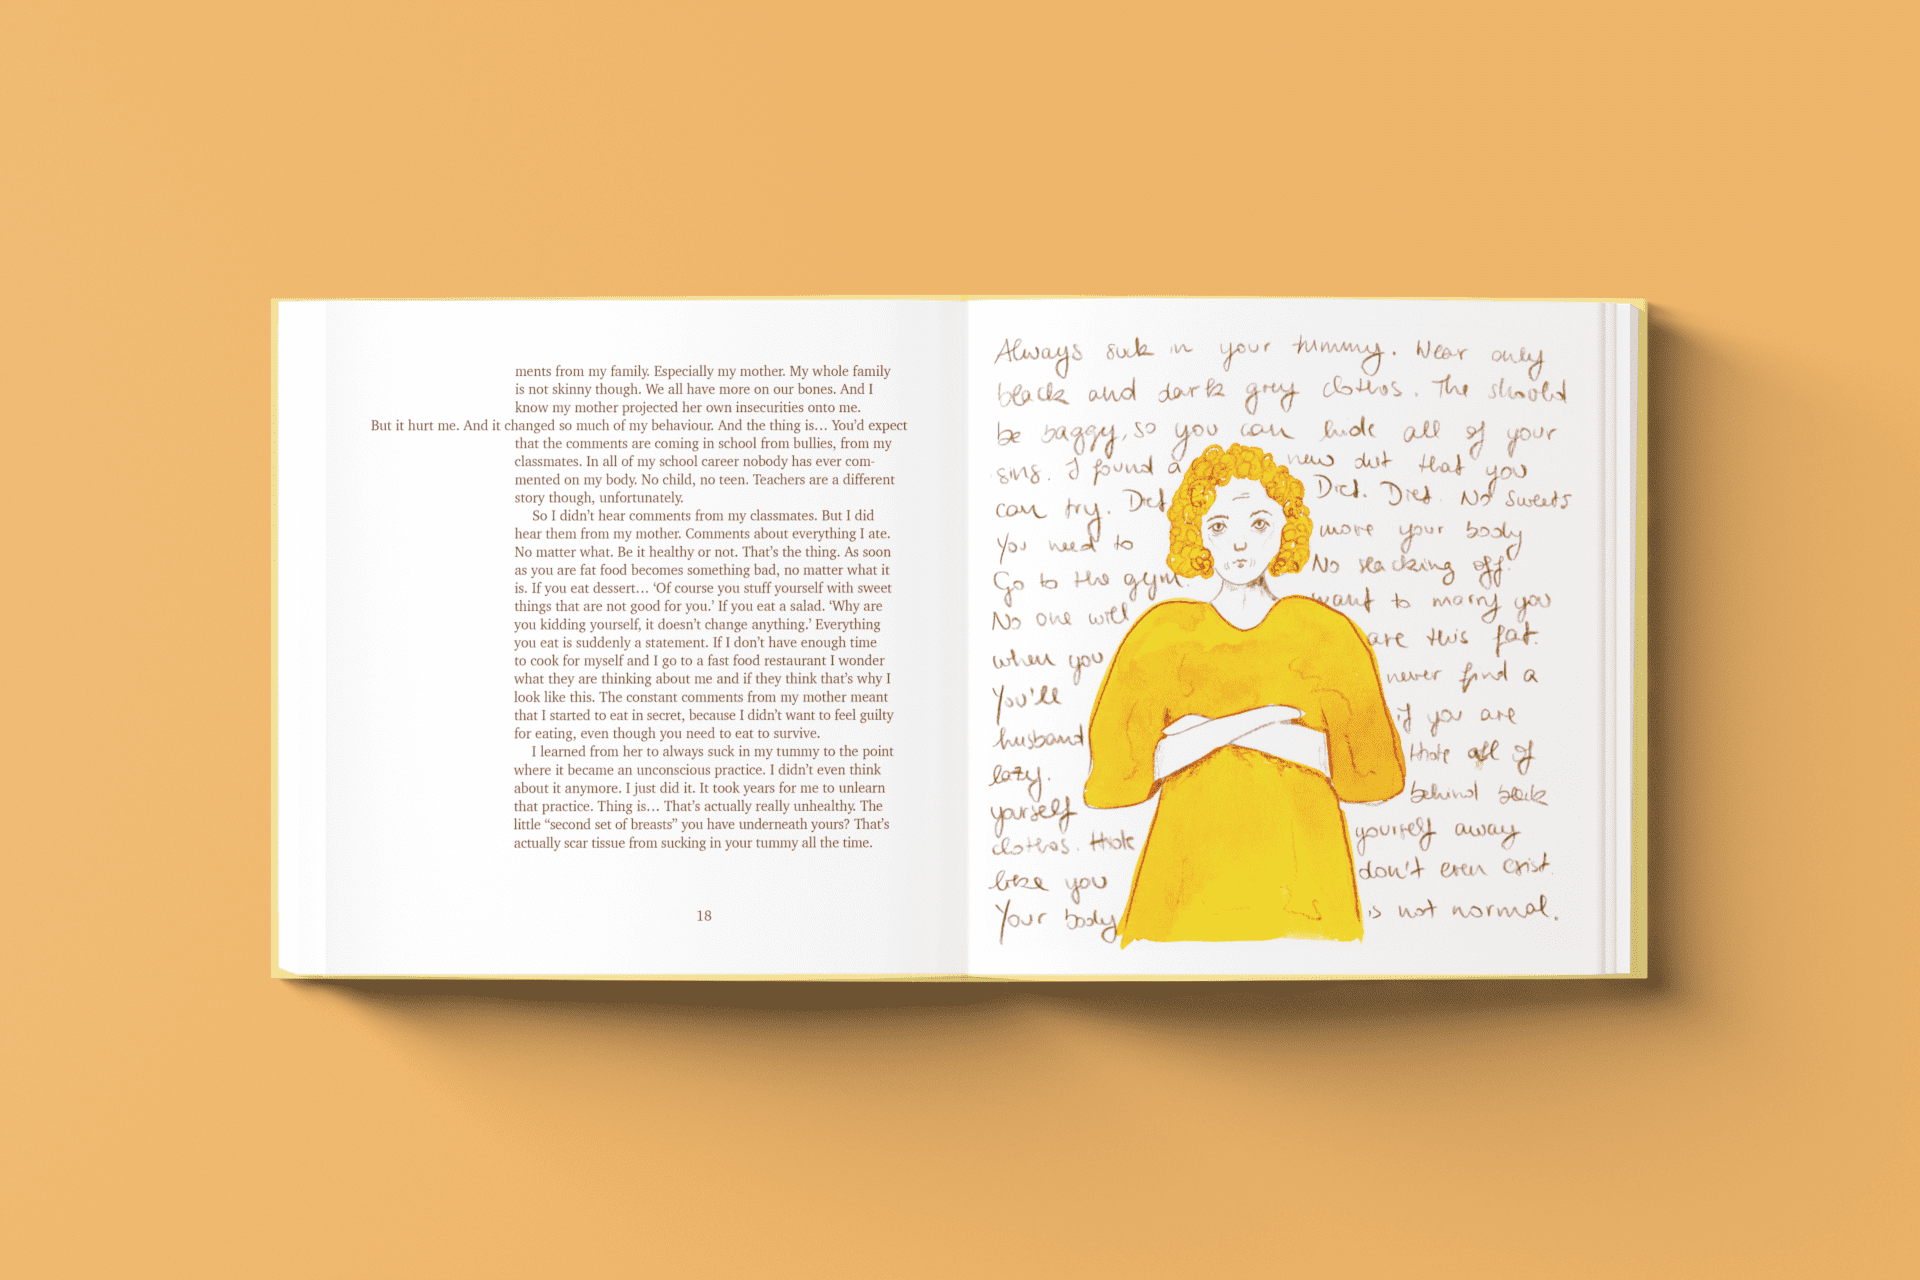 ments from my family. Especially my mother. My whole family
is not skinny though. We all have more on our bones. And I
know my mother projected her own insecurities onto me.
But it hurt me. And it changed so much of my behaviour. And the thing is… You’d expect
that the comments are coming in school from bullies, from my
classmates. In all of my school career nobody has ever com-
mented on my body. No child, no teen. Teachers are a different
story though, unfortunately.
So I didn’t hear comments from my classmates. But I did
hear them from my mother. Comments about everything I ate.
No matter what. Be it healthy or not. That’s the thing. As soon
as you are fat food becomes something bad, no matter what it
is. If you eat dessert… ‘Of course you stuff yourself with sweet
things that are not good for you.’ If you eat a salad. ‘Why are
you kidding yourself, it doesn’t change anything.’ Everything
you eat is suddenly a statement. If I don’t have enough time
to cook for myself and I go to a fast food restaurant I wonder
what they are thinking about me and if they think that’s why I
look like this. The constant comments from my mother meant
that I started to eat in secret, because I didn’t want to feel guilty
for eating, even though you need to eat to survive.
I learned from her to always suck in my tummy to the point
where it became an unconscious practice. I didn’t even think
about it anymore. I just did it. It took years for me to unlearn
that practice. Thing is… That’s actually really unhealthy. The
little “second set of breasts” you have underneath yours? That’s
actually scar tissue from sucking in your tummy all the time.
18
Always suck in your tummy. Wear only
black and dark grey clothes. The should
be baggy, so you can hide all of your
sins. I found a new diet that you
can try. Diet. Diet. Diet. No sweets
You need to move your body
Go to the gym. No slacking off.
No one will want to marry you
when you are this fat.
You'll never find a
husband if you are
lazy. Hide all of
yourself behind black
clothes. Hide yourself away
like you don't even exist.
Your body is not normal.